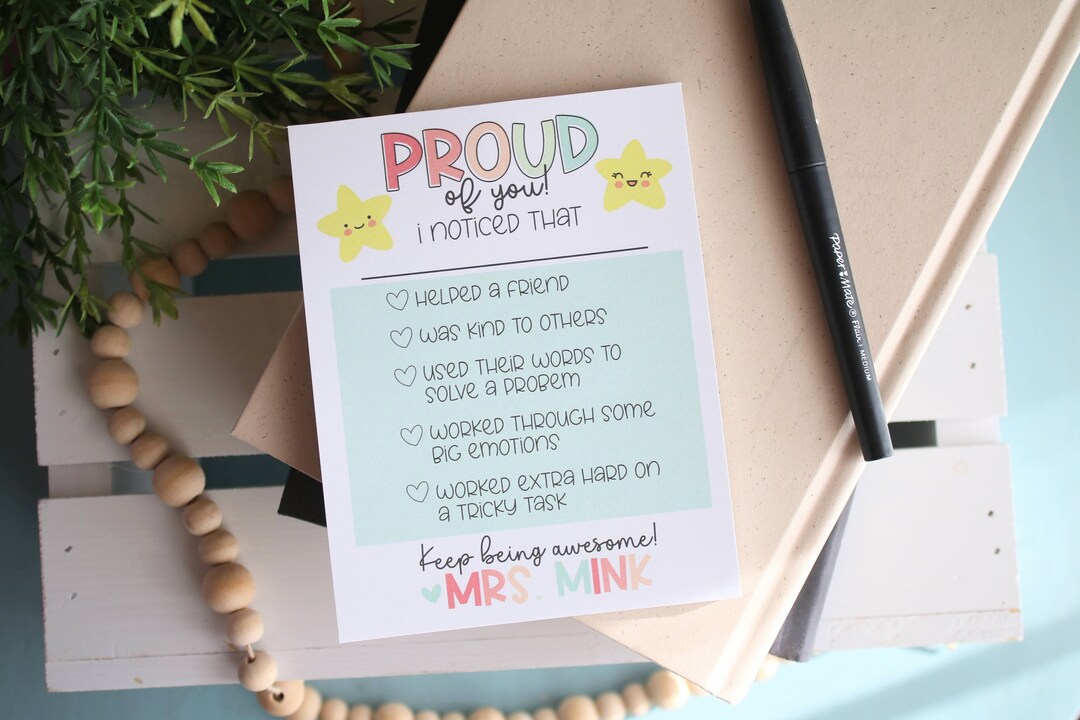 PROUD
of you!
i NOTICED THAT
HELPED a FRIEND
WAS KIND TO OTHERS
USED THEIR WORDS TO
SOLVE a PROBEM
WORKED THROUGH SOME
BIG EMOTIONS
WORKED EXTRA HARD ON
a TRICKY TASK
Keep being awesome!
MRS. MINK
paper:Mate® Flair. MEDIUM